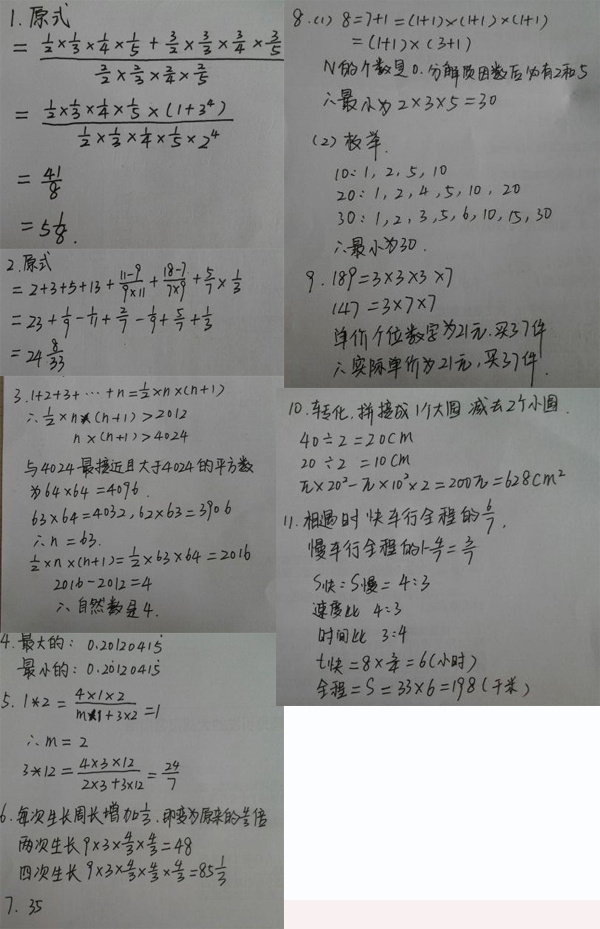 1. 原式
= (1/2×1/3×1/4×1/5 + 3/2×3/3×3/4×3/5) / (2/2×2/3×2/4×2/5)
= (1/2×1/3×1/4×1/5×(1+3⁴)) / (1/2×1/3×1/4×1/5×2⁴)
= 41/8
= 5 1/8.
2. 原式
= 2+3+5+13+ (11-9)/(9×11) + (18-7)/(7×9) + 5/7 × 1/3
= 23 + 1/9 - 1/11 + 2/7 - 1/9 + 5/7 + 1/3
= 24 8/33
3. 1+2+3+…+n=1/2×n×(n+1)
∴ 1/2×n×(n+1)>2012
n×(n+1)>4024
与4024最接近且大于4024的平方数
为64×64=4096.
63×64=4032, 62×63=3906
∴ n=63.
1/2×n×(n+1)=1/2×63×64=2016
2016-2012=4
∴ 自然数是4.
4. 最大的: 0.20120415̇
最小的: 0.2̇0120415̇
5. 1*2 = (4×1×2)/(m×1+3×2) =1
∴ m=2
3*12 = (4×3×12)/(2×3+3×12) = 24/7
6. 每次生长周长增加1/3, 即变为原来的4/3倍
两次生长 9×3×4/3×4/3=48
四次生长 9×3×4/3×4/3×4/3=85 1/3
7. 35
8. (1) 8=7+1=(1+1)×(1+1)×(1+1)
=(1+1)×(3+1)
N的个数是0. 分解质因数后必有2和5
∴最小为2×3×5=30
(2) 枚举.
10: 1, 2, 5, 10
20: 1, 2, 4, 5, 10, 20
30: 1, 2, 3, 5, 6, 10, 15, 30
∴最小为30.
9. 189=3×3×3×7
147=3×7×7
单价个位数字为21元, 买37件
∴实际单价为21元, 买37件.
10. 转化, 拼接成1个大圆 减去2个小圆.
40÷2=20cm
20÷2=10cm
π×20²-π×10²×2=200π=628cm²
11. 相遇时 快车行全程的4/7.
慢车行全程的1-4/7=3/7
S快:S慢=4:3
速度比 4:3
时间比 3:4
t快=8×3/4=6(小时)
全程=S=33×6=198(千米)